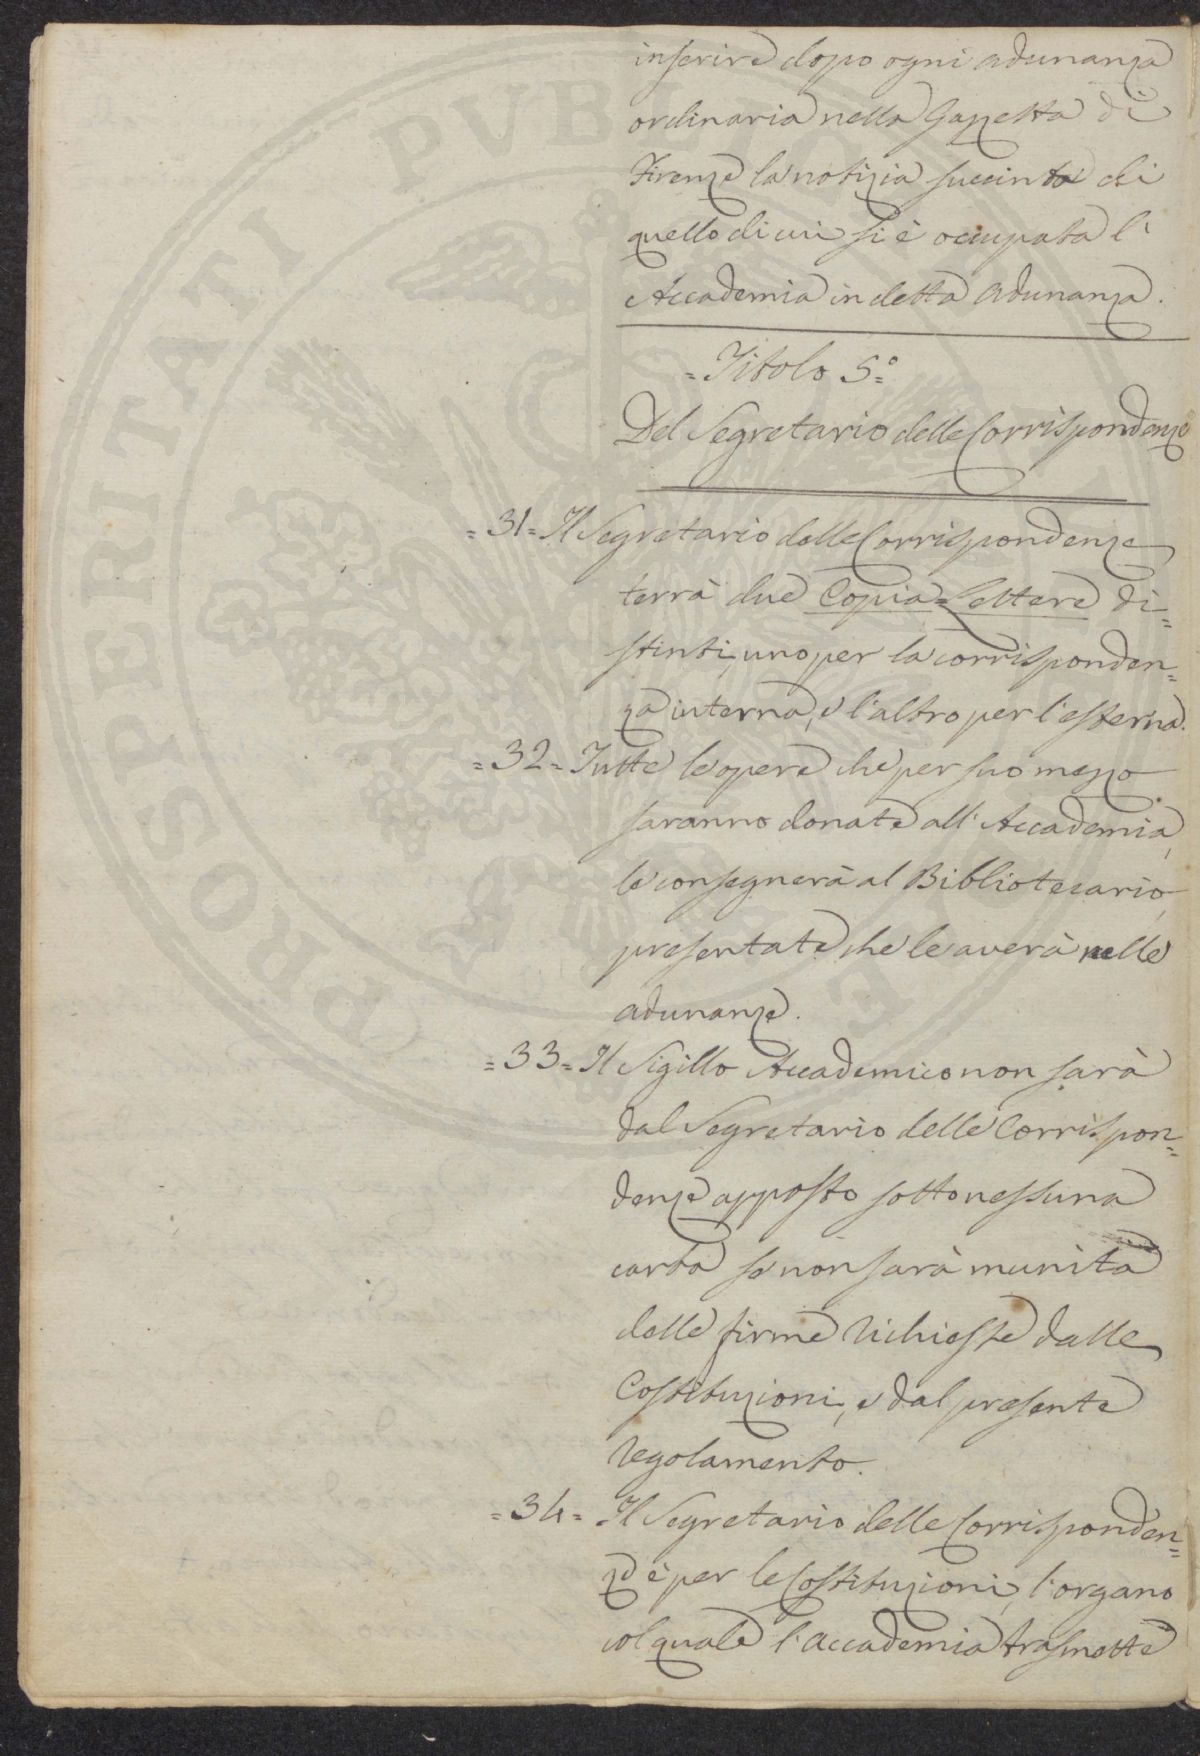 inserire dopo ogni adunanza
ordinaria nella Gazzetta di
Firenze la notizia succinta di
quello di cui si è occupata l'
Accademia in detta adunanza.
= Titolo 5.°
Del Segretario delle Corrispondenze
= 31 = Il Segretario delle Corrispondenze
terrà due Copia=Lettere di=
stinti, uno per la corrisponden=
za interna, e l'altro per l'esterna.
= 32 = Tutte le opere che per suo mezzo
saranno donate all'Accademia,
le consegnerà al Bibliotecario,
presentate che le averà nelle
adunanze.
= 33 = Il Sigillo Accademico non sarà
dal Segretario delle Corrispon=
denze apposto sotto nessuna
carta se non sarà munita
delle firme richieste dalle
Costituzioni, e dal presente
regolamento.
= 34 = Il Segretario delle Corrisponden=
ze è per le Costituzioni, l'organo
col quale l'accademia trasmette
PROSPERITATI PUBLICAE